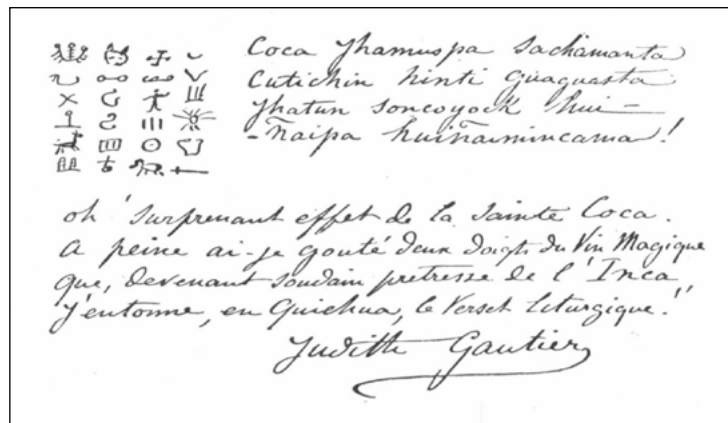 Coca Yhamuspa Sachämanta
Cutichin hinti guaguasta
Yhatun soncoyock hui-
-ñaipa huiñaimincama!
oh ! Surprenant effet de la Sainte Coca.
a peine ai-je gouté deux doigts du Vin Magique
que, devenant soudain pretresse de l'Inca
J'entonne, en Quichua, le Verset liturgique!
Judith Gautier